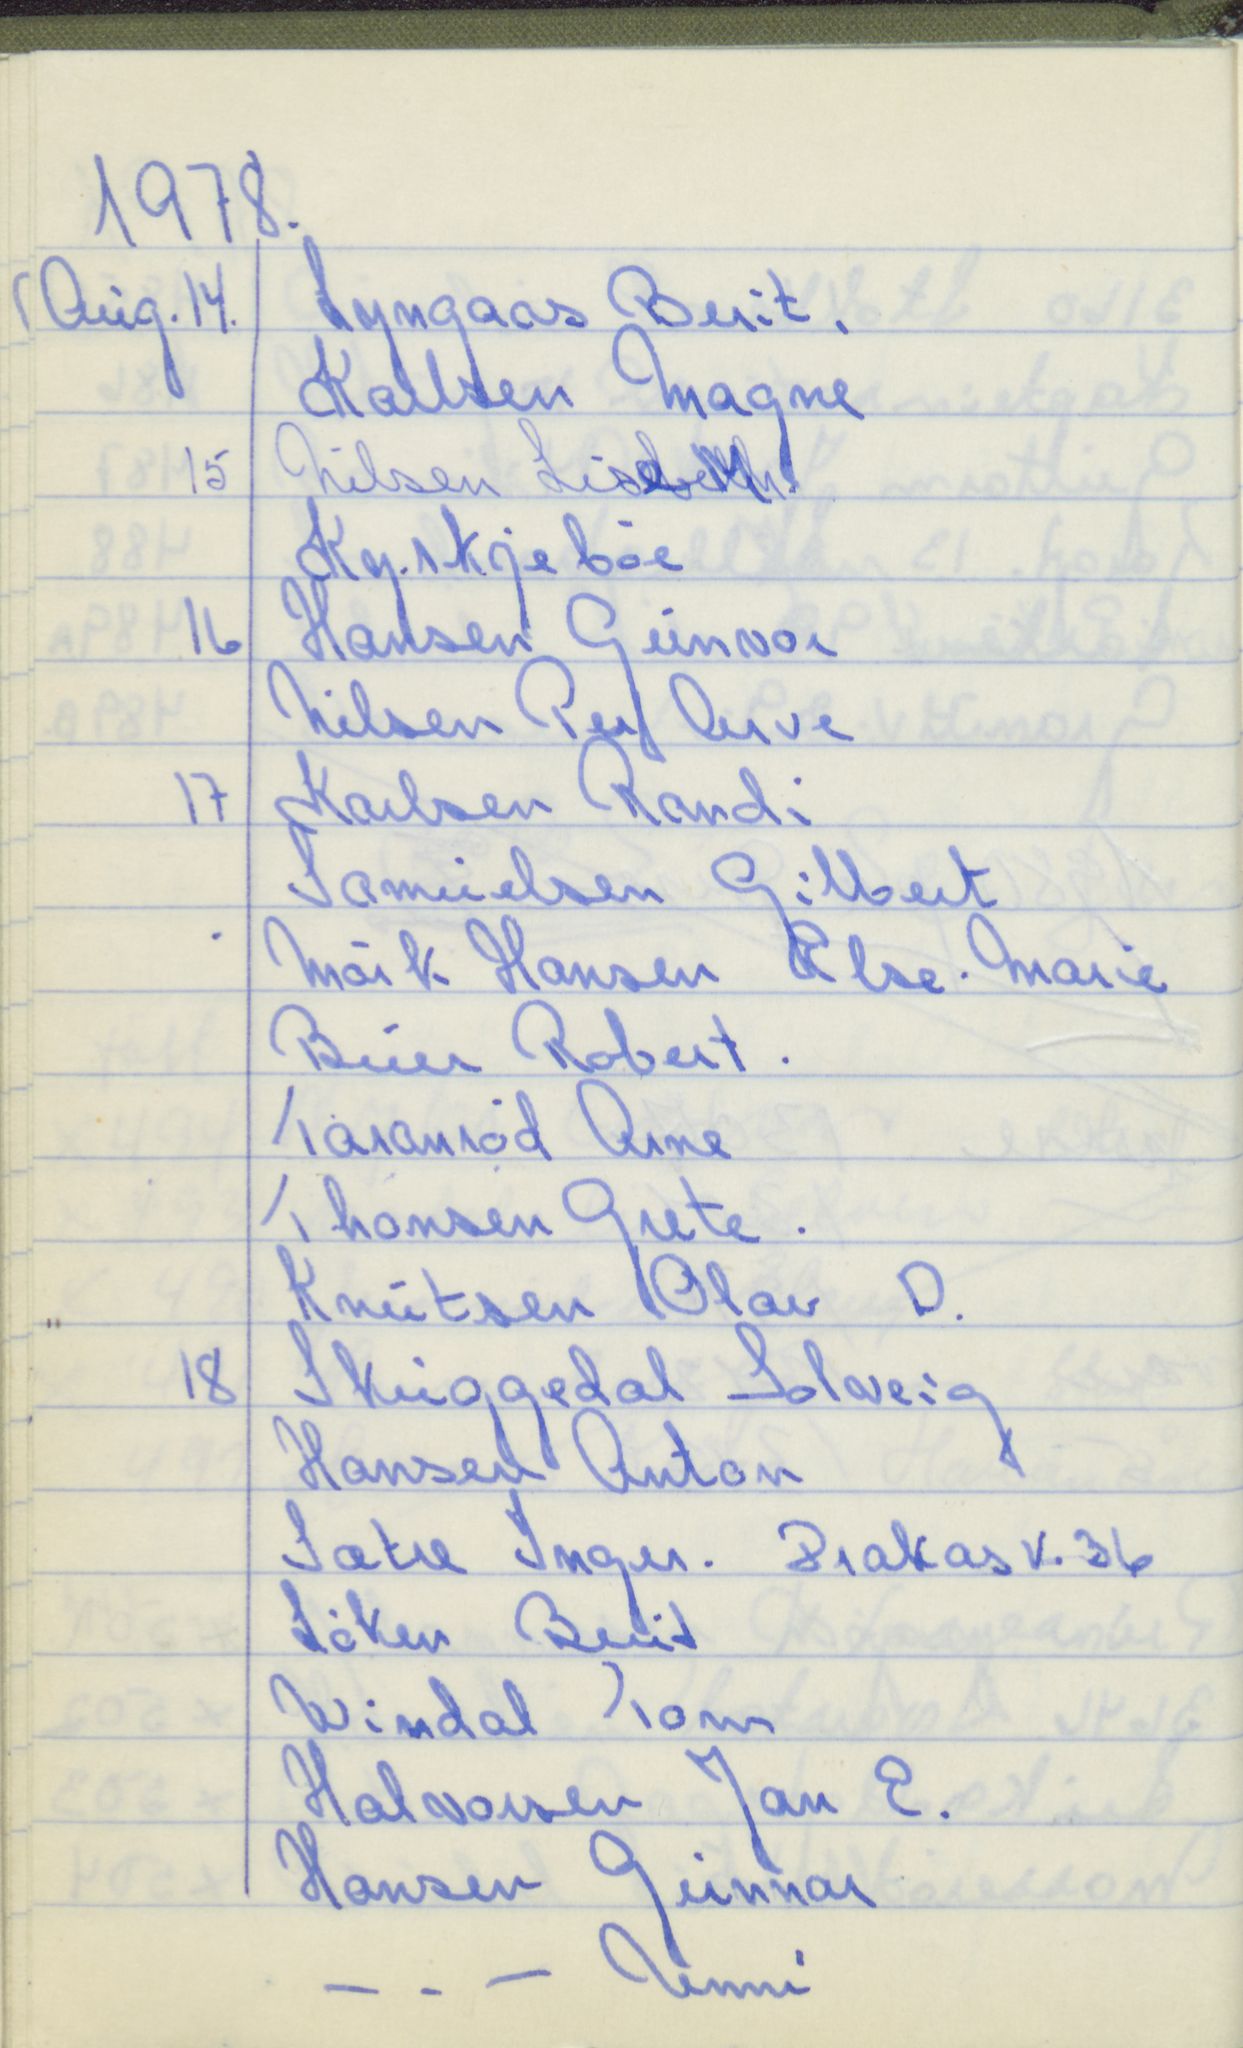 1978.
Aug. 14. Lyngaas Berit.
Karlsen Magne
15 Nilsen Lisbeth.
Ky. Skjeböe
16 Hansen Gunvor
Nilsen Per Arve
17 Karlsen Randi
Samuelsen Gilbert
Mörk Hansen Else. Marie
Buer Robert.
Taranröd Arne
Thonsen Grete.
Knutsen Olav D.
18 Skuggedal Solveig
Hansen Anton
Satre Inger. Brakas v. 36
Löken Berit
Windal Tom
Halvorsen Jan E.
Hansen Gunnar
— . . — Unni